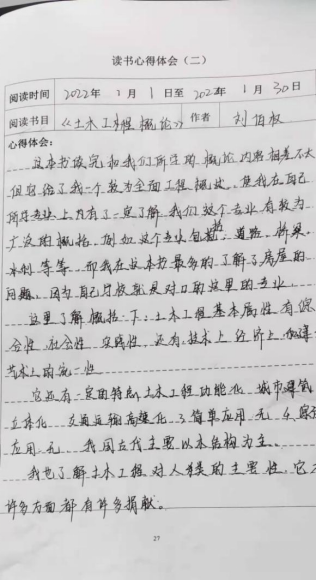 读书心得体会（二）
阅读时间 2022年 1月 1日至 2022年 1月 30日
阅读书目 《土木工程概论》 作者 刘伯权
心得体会：
这本书读完和我们所学的概论内容相差不大
但它给了我一个较为全面工程概述，使我在自己
所学专业上内有了一定了解 我们这个专业有较为
广泛的概括，例如这个专业包括：道路、桥梁、
水利等等，而我在这本书最多的了解了房屋的
问题，因为自己学校就是对口的这里的专业
这里了解概括下：土木工程基本属性有综
合性 社会性 实践性，还有技术上 经济上
艺术上的统一性
它还有一定的特点，土木工程功能化 城市建筑
立体化 交通运输高速化 3.简单应用 无 4.综
应用 无 我国古代主要以木结构为主。
我也了解土木工程对人类的主要性，它
许多方面都有许多捐献。
27